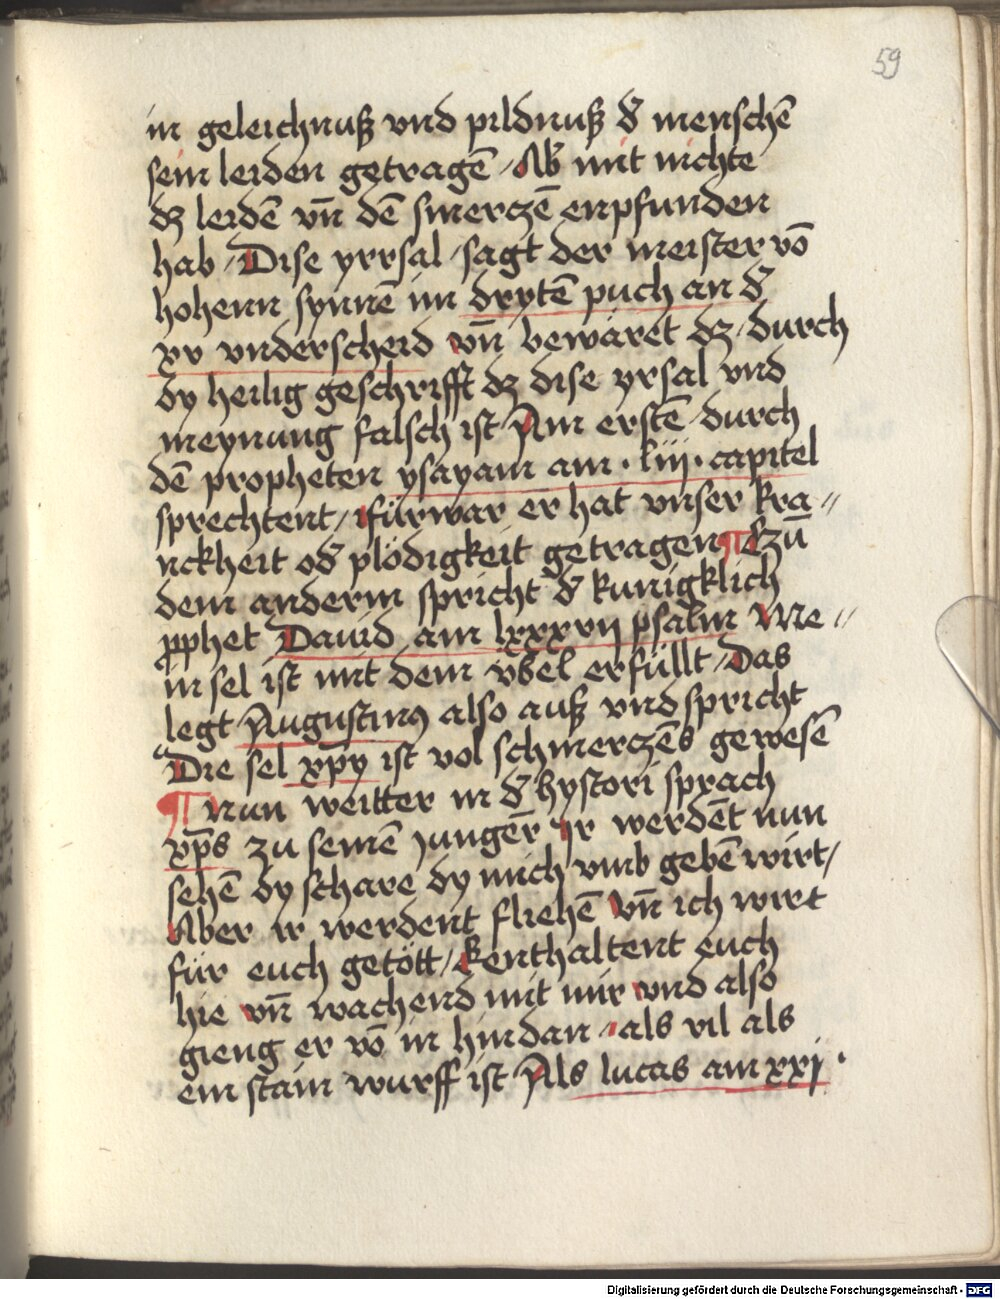 59
in geleichnuß vnd pildnuß d̄ menschē
sein leiden getragē / Ab̄ mit nichte
dz leidē vn̄ dē smerczē enpfunden
hab / Dise yrrsal / sagt der meister vō
hohenn synnē im drytē puch an d̄
xv vnderscheid vn̄ bewäret dz durch
dy heilig geschrifft dz dise yrsal vnd
meynung falsch ist Am erstē durch
dē propheten ysayam am · liij · capitel
sprechtent / fürwar er hat vnser kra〃
nckheit od̄ plödigkeit getragen ¶ Czū
dem anderm spricht d̄ kunigklich
ꝓphet Dauid am lxxxvij psalm Me〃
in sel ist mit dem vbel erfüllt / Das
legt Augustinꝰ also auß vnd spricht
Die sel xp̄y ist vol schmerczēs gewesē
¶ Nun weitter in d̄ hystori sprach
xp̄s zu seinē Jungēr Ir werdēt nun
sehē dy schare dy mich vmb gebē wirt /
Aber ir werdent fliehē vn̄ ich wirt
für euch getött / Enthaltent euch
hie vn̄ wachend mit mir vnd also
gieng er vō in hindan / als vil als
ein stain wurff ist Als lucas am xxij ·
Digitalisierung gefördert durch die Deutsche Forschungsgemeinschaft - DFG